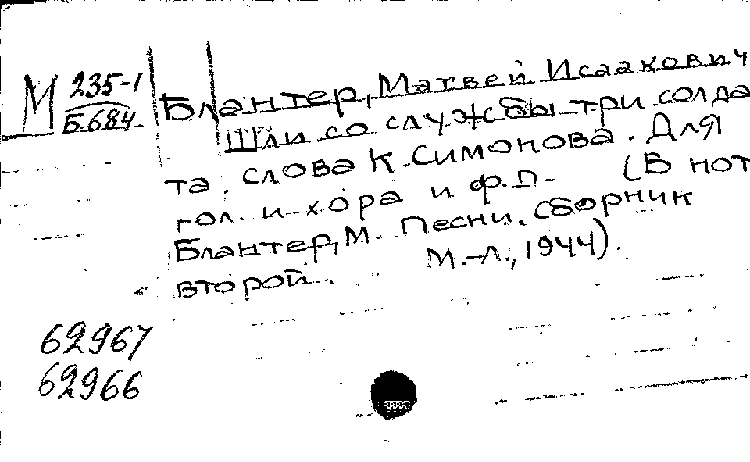 М 235-1
Б684
Блантер, Матвей Исаакович
Шли со службы три солда
та. Слова К. Симонова. Для
гол. и хора и ф.п. (В нот
Блантер, М. Песни. Сборник
второй. М.-Л., 1944).
62967
62966